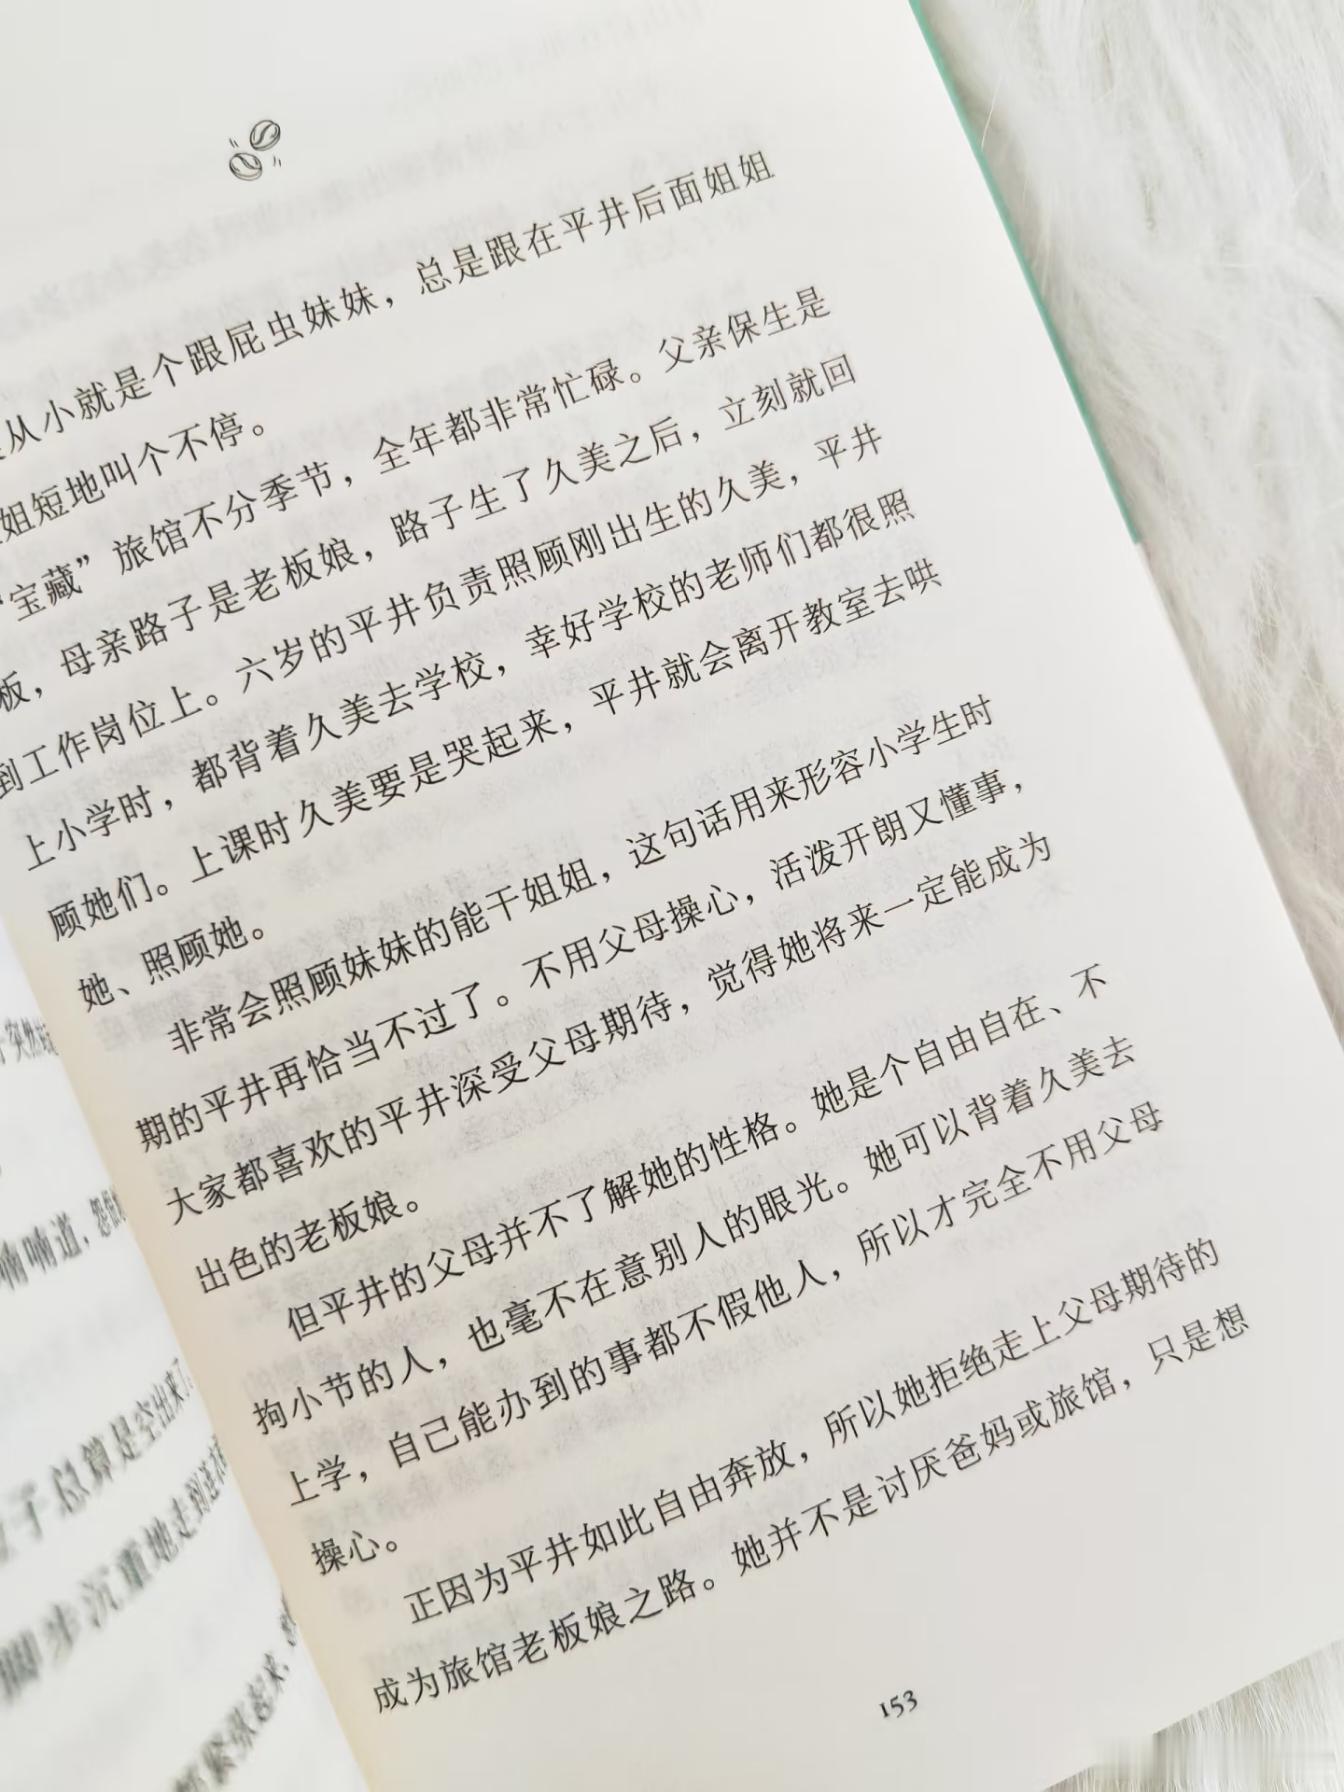 从小就是个跟屁虫妹妹，总是跟在平井后面姐姐
姐短地叫个不停。
“宝藏”旅馆不分季节，全年都非常忙碌。父亲保生是
板，母亲路子是老板娘，路子生了久美之后，立刻就回
到工作岗位上。六岁的平井负责照顾刚出生的久美，平井
上小学时，都背着久美去学校，幸好学校的老师们都很照
顾她们。上课时久美要是哭起来，平井就会离开教室去哄
她、照顾她。
非常会照顾妹妹的能干姐姐，这句话用来形容小学生时
期的平井再恰当不过了。不用父母操心，活泼开朗又懂事，
大家都喜欢的平井深受父母期待，觉得她将来一定能成为
出色的老板娘。
但平井的父母并不了解她的性格。她是个自由自在、不
拘小节的人，也毫不在意别人的眼光。她可以背着久美去
上学，自己能办到的事都不假他人，所以才完全不用父母
操心。
正因为平井如此自由奔放，所以她拒绝走上父母期待的
成为旅馆老板娘之路。她并不是讨厌爸妈或旅馆，只是想
153
突然
喃喃道，
子总算是空出来了
脚步沉重地走到
紧张起来，